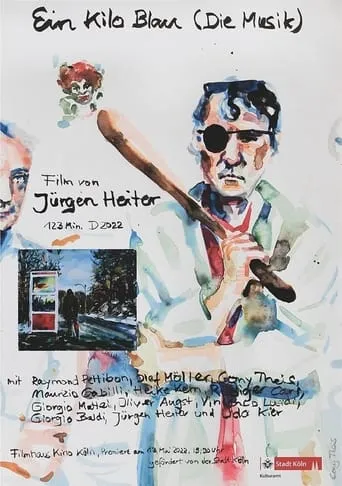 Ein Kilo Blau (Die Musik)
Film von
Jürgen Heiter
123 Min. D 2022
mit Raymond Pettibon, Olaf Möller, Gany Theis,
Maurizio Gabilli, Heike Kern, Rüdiger
Giorgio Oliver Augst, Vincenzo
Giorgio Baldi, Jürgen Heiter und Udo Kier
Filmhaus Kino Köln, Premiere am Mai 2022,
gefördert von der Stadt Köln
Stadt Köln
Kulturamt